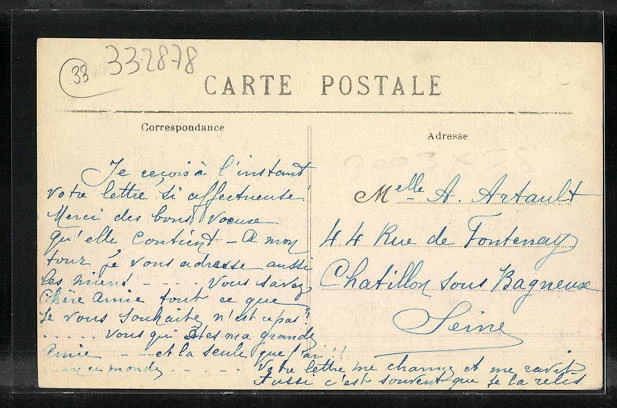 33
332878
CARTE POSTALE
Correspondance
Adresse
Je reçois à l'instant
votre lettre si affectueuse
Merci des bons voeuse
qu'elle contient - A mon
tour je vous adresse aussi
les miens - - - . Vous savez
chère Amie tout ce que
je vous souhaite n'est ce pas?
..... vous qui êtes ma grande
Amie - - et la seule que j'ai!!!
au monde . . . . . . Votre lettre me charme et me ravit
Aussi c'est souvent que je la relis
Melle A. Artault
44 Rue de Fontenay
Chatillon sous Bagneux
Seine